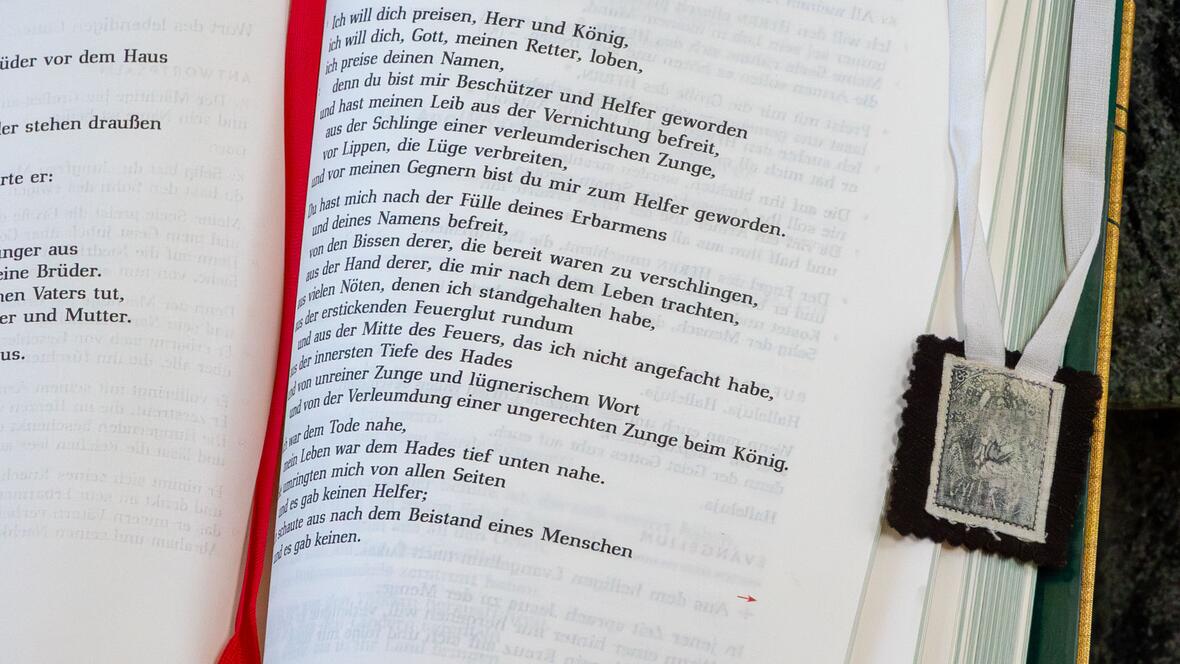 üder vor dem Haus
er stehen draußen
rte er:
nger aus
eine Brüder.
nen Vaters tut,
er und Mutter.
us.
Ich will dich preisen, Herr und König,
ich will dich, Gott, meinen Retter, loben,
ich preise deinen Namen,
denn du bist mir Beschützer und Helfer geworden
und hast meinen Leib aus der Vernichtung befreit,
aus der Schlinge einer verleumderischen Zunge,
vor Lippen, die Lüge verbreiten,
und vor meinen Gegnern bist du mir zum Helfer geworden.
Du hast mich nach der Fülle deines Erbarmens
und deines Namens befreit,
von den Bissen derer, die bereit waren zu verschlingen,
aus der Hand derer, die mir nach dem Leben trachten,
us vielen Nöten, denen ich standgehalten habe,
us der erstickenden Feuerglut rundum
und aus der Mitte des Feuers, das ich nicht angefacht habe,
us der innersten Tiefe des Hades
nd von unreiner Zunge und lügnerischem Wort
und von der Verleumdung einer ungerechten Zunge beim König.
war dem Tode nahe,
mein Leben war dem Hades tief unten nahe.
umringten mich von allen Seiten
nd es gab keinen Helfer;
schaute aus nach dem Beistand eines Menschen
nd es gab keinen.